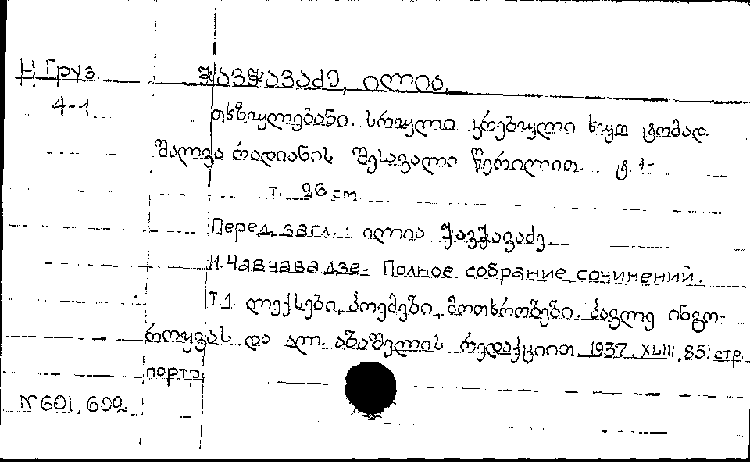 Н Груз ჭავჭავაძე, ილია
4-1 თხზულებანი. სრული კრებული ხუთ ტომად.
შალვა რადიანის შესავალი წერილით. ტ. 1-
т. 26 см
Перед загл.: ილია ჭავჭავაძე
И. Чавчавадзе. Полное собрание сочинений.
Т.1 ლექსები, პოემები, მოთხრობები. პავლე ინგო-
როყვას და ალ. აბაშელის რედაქციით 1937 XLIII, 851 стр.
портр.
N 691, 692